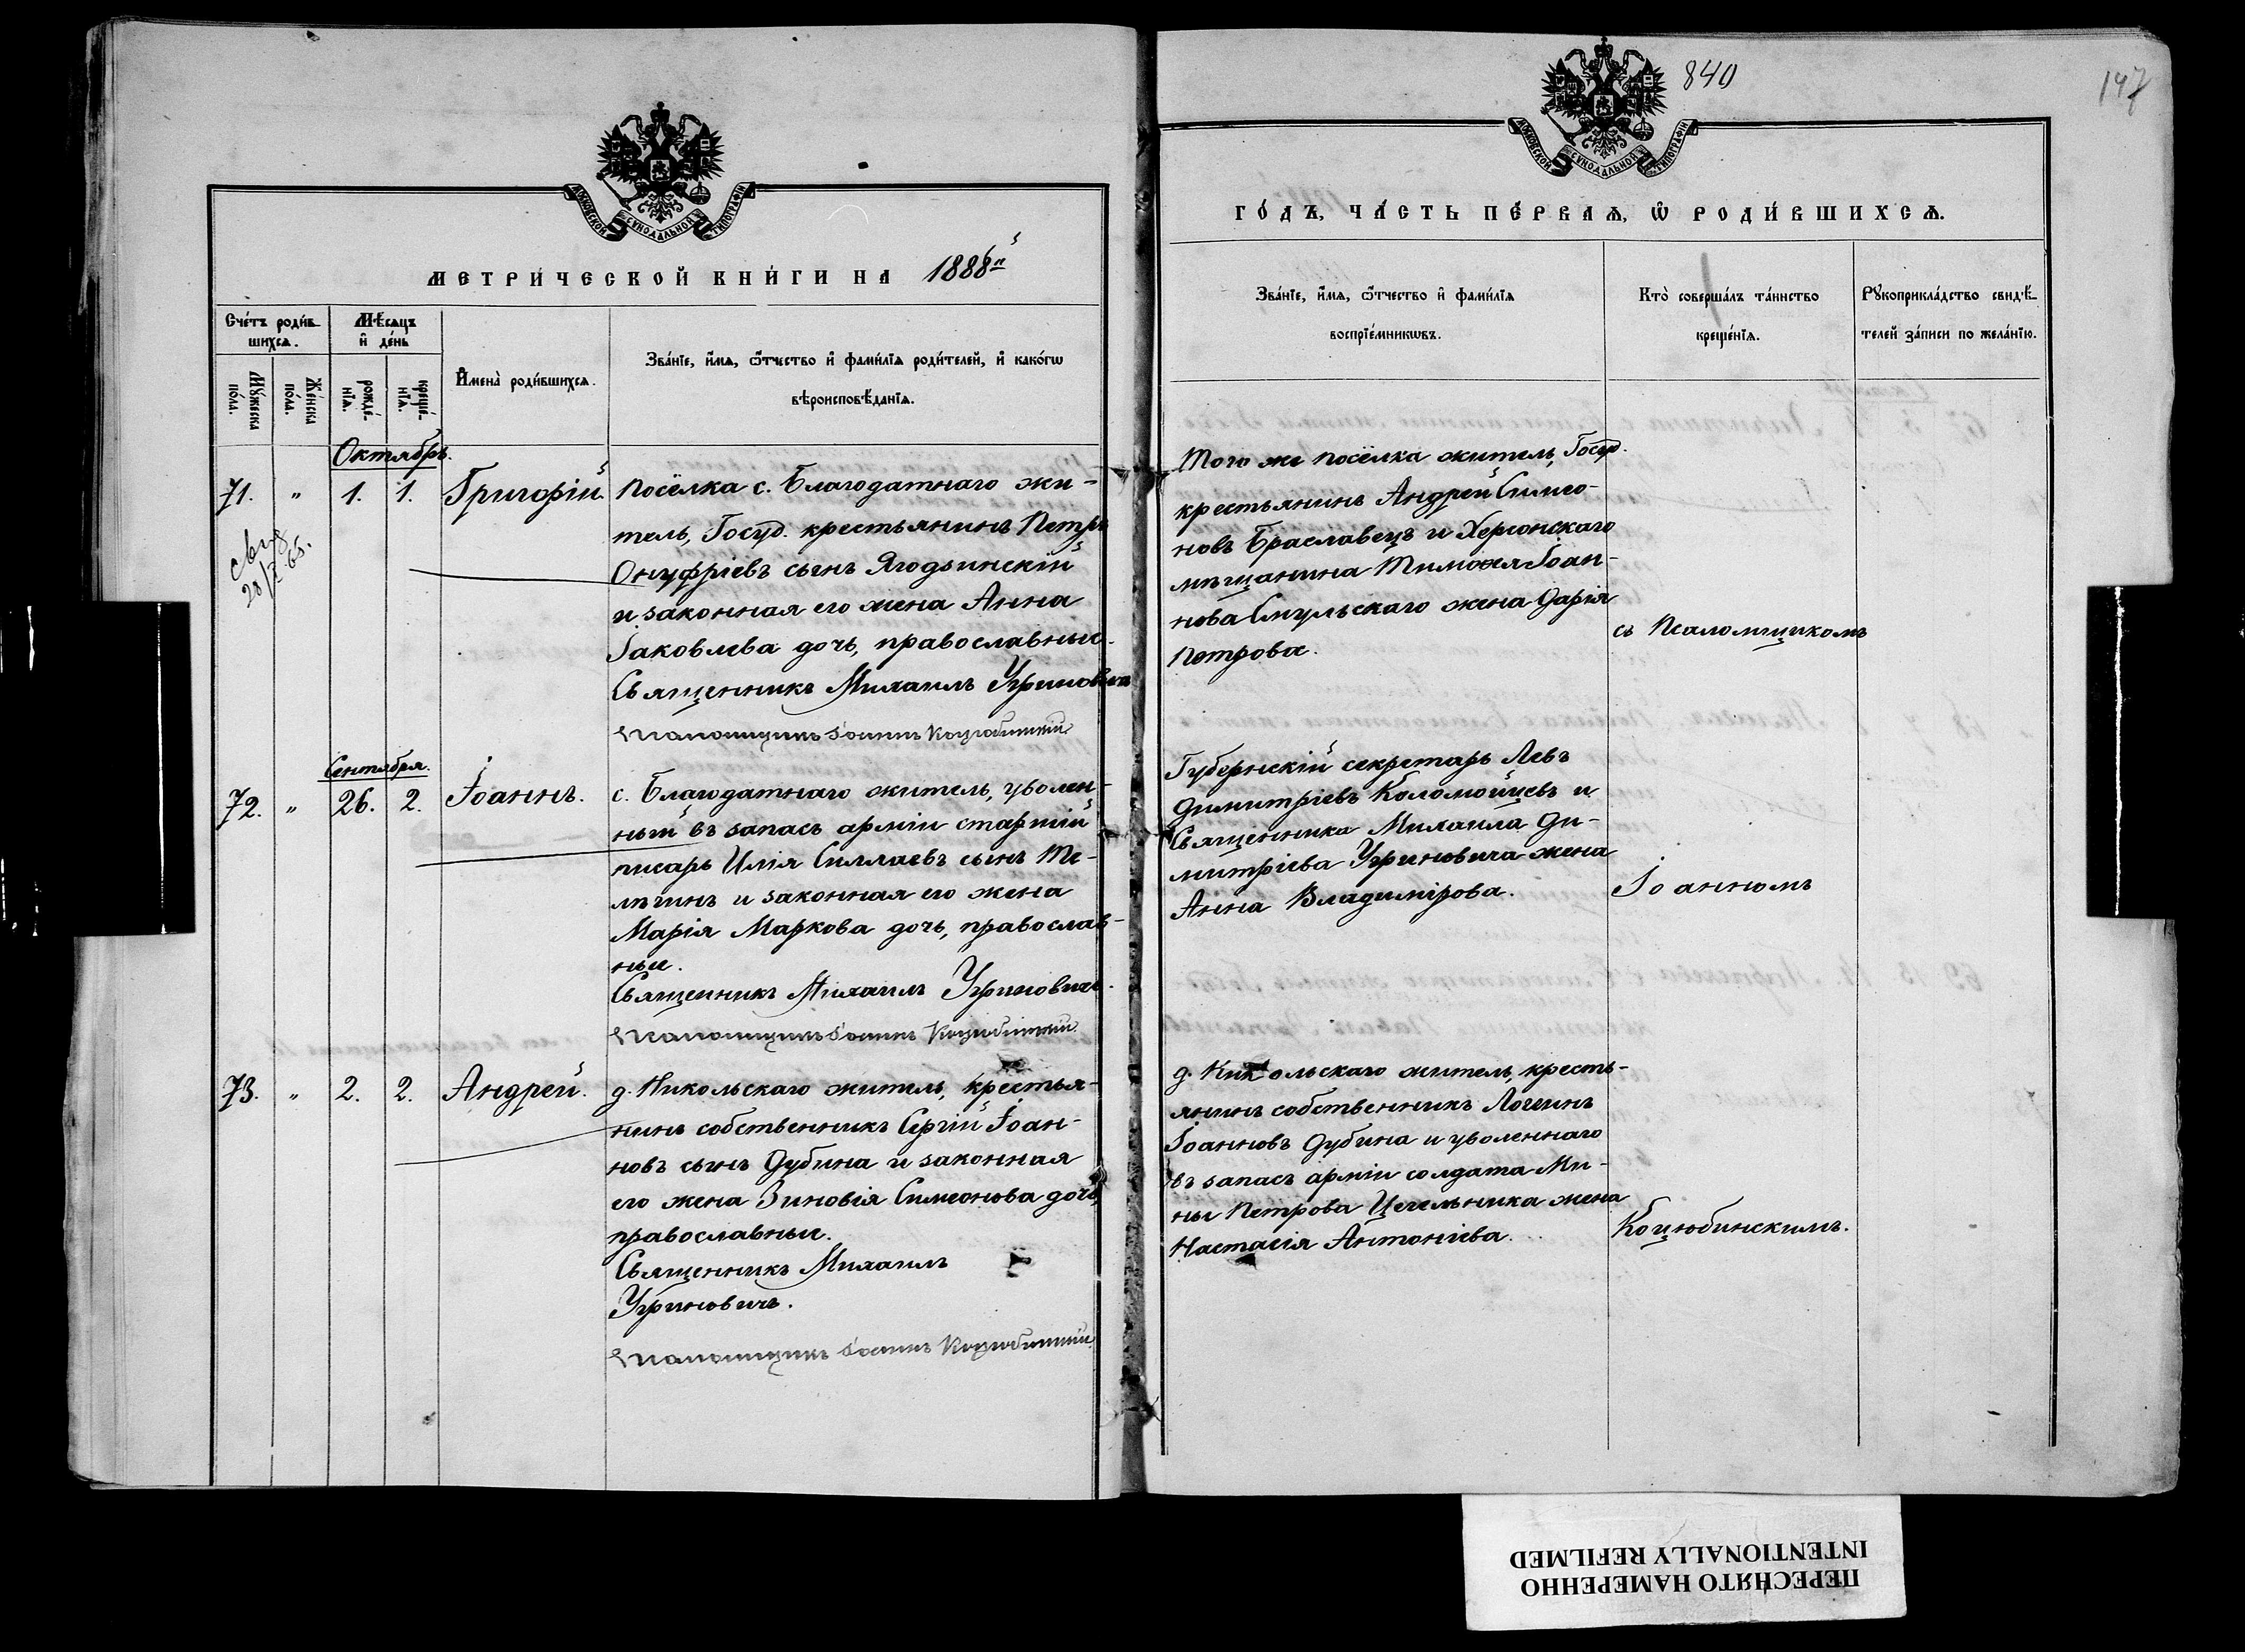 МОСКОВСКОЙ СѴНОДАЛЬНОЙ ТИПОГРАФІИ
МЕТРИ́ЧЕСКОЙ КНИ́ГИ НА 1888й
Сче́тъ роди́в-
шихсѧ.
Мѣ́сѧцъ
и҆ де́нь
Мꙋ́жеска
по́ла.
Же́нска
по́ла.
рожде́-
нїѧ.
креще́-
нїѧ.
И҆мена̀ роди́вшихсѧ.
Зва́нїе, и҆́мѧ, ѻ҆́тчество и҆ фами́лїѧ роди́телей, и҆ како́гѡ
вѣроисповѣ́данїѧ.
Октябрь.
71. " 1. 1. Григорій.
Посёлка с. Благодатнаго жи-
тель, Госуд. крестьянинъ Петръ
Онуфріевъ сынъ Ягодзинскій
и законная его жена Анна
Іаковлева дочь, православные.
Священникъ Михаилъ Угриновичъ
Псаломщикъ Іоаннъ Коцюбинскій
28/X 65.
Сентября.
72. " 26. 2. Іоаннъ.
с. Благодатнаго житель, уволен-
ный въ запасъ арміи старшій
писарь Илія Силлаевъ сынъ Те-
лѣгинъ и законная его жена
Марія Маркова дочь, православ-
ные.
Священникъ Михаилъ Угриновичъ.
Псаломщикъ Іоаннъ Коцюбинскій
73. " 2. 2. Андрей.
д. Никольскаго житель, крестья-
нинъ собственникъ Сергій Іоан-
новъ сынъ Дубина и законная
его жена Зиновія Симеонова дочь,
православные.
Священникъ Михаилъ
Угриновичъ.
Псаломщикъ Іоаннъ Коцюбинскій
840
147
МОСКОВСКОЙ СѴНОДАЛЬНОЙ ТИПОГРАФІИ
ГО́ДЪ, ЧА́СТЬ ПЕ́РВАѦ, Ѡ҆ РОДИ́ВШИХСѦ.
Зва́нїе, и҆́мѧ, ѻ҆́тчество и҆ фами́лїѧ
воспрїе́мникѡвъ.
Кто̀ соверша́лъ та́инство
креще́нїѧ.
Рꙋкоприкла́дство свидѣ́-
телей за́писи по жела́нїю.
Того же посёлка житель, Госуд.
крестьянинъ Андрей Симео-
новъ Браславецъ и Херсонскаго
мѣщанина Тимоѳея Іоан-
нова Смульскаго жена Дарія
Петрова.
съ Псаломщикомъ
Губернскій секретарь Левъ
Димитріевъ Коломойцевъ и
Священника Михаила Ди-
митріева Угриновича жена
Анна Владимірова.
Іоанномъ
д. Никольскаго житель, кресть-
янинъ собственникъ Логгинъ
Іоанновъ Дубина и уволеннаго
въ запасъ арміи солдата Ми-
ны Петрова Цегельника жена
Настасія Антоніева.
Коцюбинскимъ.
ПЕРЕСНЯТО НАМЕРЕННО
INTENTIONALLY REFILMED